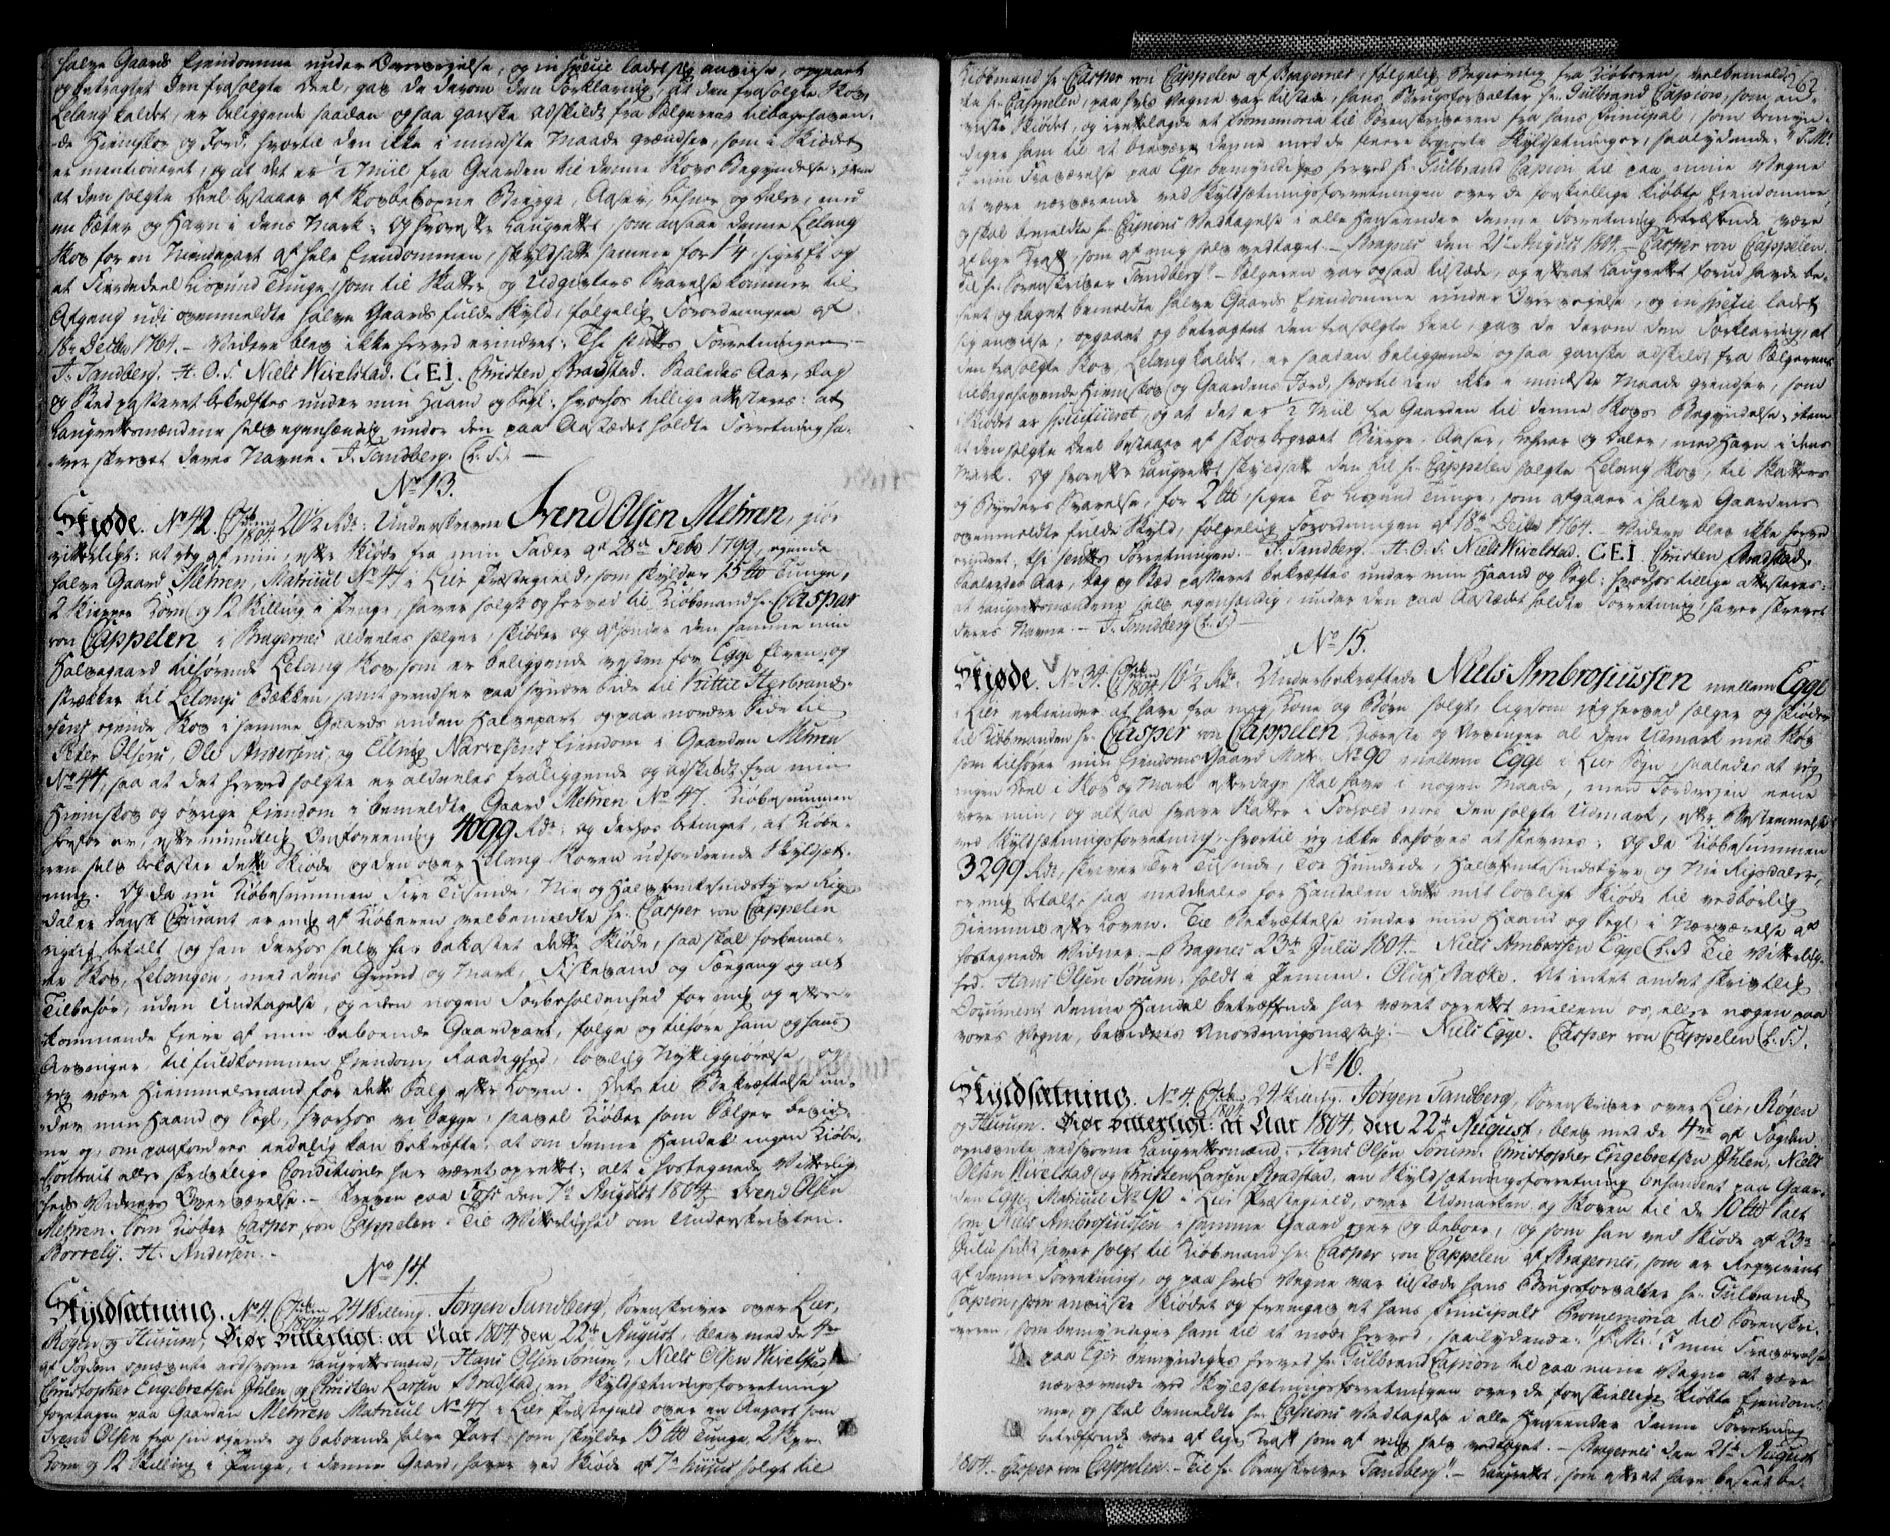 halve Gaards Eiendomme under Overveielse, og in specie ladet sig anviise, opgaaet
og betragtet den frasolgte Deel, gav de derom den Forklaring, at den frasolgte Skov
Lelang kaldet, er beliggende saadan og saa ganske adskildt fra Sælgerens tilbagehaven-
de Hiemskov og Jord, hvortil den ikke i mindste Maade grændser, som i Skiødet
er mentioneret, og at det er ½ Miil fra Gaarden til denne Skovs Begyndelse, item
at den solgte Deel bestaaer af Skovbevoxne Bierge, Aaser, Køsner og Dale, med
en Sæter og Havn i dens Mark; Og hvorefter Laugrettet som ansaae denne Lelang
Skov for en Niendepart af hele Eiendommen, skyldsatte samme for 1¼, siger Et og
et Fierdedeel Lispund Tunge, som til Skatter og Udgivters Svarelse kommer til
Afgang udi ovenmeldte halve Gaards fulde Skyld, følgelig Forordningen af
18de Decbr 1764. – Videre blev ikke herved erindret; Thi sluttes Forretningen –
J. Tandberg. H. O. S. Niels Wivelstad. C E I. Christen Bradstad. Saaledes Aar, Dag
og Sted passeret bekræftes under min Haand og Segl; hvorhos tillige attesteres: at
Laugrettesmændene selv egenhændig under den paa Aastædet holdte Forretning ha-
ver skrevet deres Navne. J. Tandberg. (L. S.) –
No 13.
Skiøde. No 42. 1804. 20½ Rdr: Underskrevne Svend Olsen Mehren, giør
vitterligt: at jeg af min, efter Skiøde fra min Fader af 28de Febr 1799, eyende
halve Gaard Mehren, Matricul No 47 i Lier Præstegield, som skylder 15 ℔ Tunge,
2 Skiepper Korn og 12 Skilling i Penge, haver solgt og herved til Kiøbmand Hr. Caspar
von Cappelen i Bragernes aldeeles sælger, skiøder og afhænder den samme min
Halvegaard tilhørende Lelang Skov som er beliggende vesten for Egge Elven, og
strækker til Lelangs Bækken, samt grendser paa syndre Side til Kittil Herbrand-
sens eyende Skov i samme Gaards anden Halvepart og paa nordre Side til
Peter Olsens, Ole Andersens, og Elling Narvesens Eiendom i Gaarden Mehren
No 44, saa at det herved solgte er aldeeles fraliggende og adskildt fra min
Hiemskov og øvrige Eiendom i bemeldte Gaard Mehren No 47. Kiøbesummen
herfor er, efter mundtlig Overeenkomst 4099 Rdr: og derhos betinget, at Kiøbe-
ren selv bekoster dette Skiøde og den over Lelang Skoven udfordrende Skyldsæt-
ning. Og da nu Kiøbesummen Fire Tusinde, Nie og Halvfemtesindstyve Rigs-
daler dansk Courant er mig af Kiøberen velbemeldte Hr. Casper von Cappelen
rigtig betalt og han derhos selv har bekostet dette Skiøde, saa skal forbemel-
te Skov, Lelangen, med dens Grund og Mark, Fiskevand og Fægang og alt
Tilbehør, uden Undtagelse, og uden nogen Forbeholdenhed for mig og efter-
kommende Eiere af min beboende Gaardpart, følge og tilhøre ham og hans
Arvinger, til fuldkommen Eiendom, Raadighed, lovlig Nyttiggiørelse, og
jeg være Hiemmelsmand for dette Salg efter Loven. Dets til Bekræftelse un-
der min Haand og Segl, hvorhos vi begge, saavel Kiøber som Sælger bevid-
ne og, om paafordres eedelig kan bekræfte: at om denne Handel ingen Kiøbe-
Contract eller skrivtlige Conditioner har været oprettet; alt i hostegnede Vitterlig-
heds Vidners Overværelse. – Skreven paa Foss den 7de August 1804. Svend Olsen
Mehren. Som Kiøber Casper von Cappelen. Til Vitterlighed om Underskriften.
Borrebÿ. H. Andersen. –
No 14.
Skyldsætning. No 4. 1804. 24 Skilling. Jørgen Tandberg, Sorenskriver over Lier,
Røgen og Hurum, Giør vitterligt: at Aar 1804 den 22de August, blev med de 4re
af Fogden opnævnte eedsvorne Laugrettesmænd, Hans Olsen Sorum, Niels Olsen Wivelstad,
Christopher Engebretsen Ihlen og Christen Larsen Bradstad, en Skyldsætningsforretning
foretagen paa Gaarden Mehren Matricul No 47 i Lier Præstegield over en Anpart som
Svend Olsen fra sin eyende og beboende halve Part som skylder 15 ℔ Tunge, 2 Skpr
Korn og 12 Skilling i Penge, i denne Gaard, haver ved Skiøde af 7de hujus solgt til
262
Kiøbmand Hr. Casper von Cappelen af Bragernes, følgelig Begiering fra Kiøberen, velbemeld-
te Hr. Cappelen, paa hvis Vegne var tilstæde, hans Brugsforvalter Hr. Gulbrand Capion, som an-
viiste Skiødet, og irettelagde et Promemoria til Sorenskriveren fra hans Principal, som bemyn-
diger ham til at bievære denne med de fleere begierte Skyldsætninger, saalydende: "P. M.
I min Fraværelse paa Eger bemyndiges herved Hr. Gulbrand Capion til paa mine Vegne
at være nærværende ved Skyldsætningsforretningen over de forskiellige kiøbte Eiendomme,
og skal bemeldte Hr. Capions Vedtagelse i alle Henseender denne Forretning betræffende være
af lige Kraft, som af mig selv vedtaget. – Bragernes den 21de August 1804. – Casper von Cappelen.
Til Hr. Sorenskriver Tandberg". – Sælgeren var ogsaa tilstæde, og efterat Laugrettet forud havde be-
seet og taget bemeldte halve Gaards Eiendomme under Overveielse, og in specie ladet
sig anviise, opgaaet og betragtet den frasolgte Deel, gav de derom den Forklaring, at
den frasolgte Skov Lelang kaldet, er saadan beliggende og saa ganske adskildt fra Sælgerens
tilbagehavende Hiemskov og Gaardens Jord, hvortil den ikke i mindste Maade grendser, som
i Skiødet er specificeret, og at det er ½ Miil fra Gaarden til denne Skovs Begyndelse, item
at den solgte Deel bestaaer af skovbegroet Bierge, Aaser, Køsner og Daler, med Havn i dens
Mark. Og hvorefter Laugrettet skyldsatte den til Hr. Cappelen solgte Lelang Skov, til Skatters
og Byrders Svarelse, for 2 ℔, siger To Lispund Tunge, som afgaaer i halve Gaardens
ovenmeldte fulde Skyld, følgelig Forordningen af 18de Decbr 1764. – Videre blev ikke herved
erindret, thi sluttes Forretningen. – J. Tandberg. H. O. S. Niels Wivelstad. C E I. Christen Bradstad.
Saaledes Aar, Dag og Sted passeret bekræftes under min Haand og Segl; hvorhos tillige attesteres:
at Laugrettesmændene selv egenhændig, under den paa Aastædet holdte Forretning, haver skrevet
deres Navne. – J. Tandberg (L. S.) –
No 15.
Skiøde. No 34. 1804. 16½ Rdr. Underbekræftede Niels Ambrosiussen mellem Egge
i Lier erkiender at have fra mig, Kone og Børn solgt, ligesom jeg herved sælger og skiøder
til Kiøbmanden Hr. Casper von Cappelen, Foreste og Arvinger al den Udmark med Skov
som tilhører min Eiendoms Gaard Matr. No 90 mellem Egge i Lier Sogn, saaledes at jeg
ingen Deel i Skov og Mark efterdags skal have i nogen Maade, men Jorderejen ene
være min, og altsaa svare Skatter i Forhold med den solgte Udmark, efter Bestemmelse
ved Skyldsætningsforretning, hvortil jeg ikke behøves at stevnes; og da Kiøbesummen
3299 Rdr, skriver Tre Tusinde, Toe Hundrede Halvfemtesindstyve og Nie Rigsdaler,
er mig betalt, saa meddeeles for Handelen dette mit lovlige Skiøde til vedbørlig
Hiemmel efter Loven. Til Bekræftelse under min Haand og Segl i Nærværelse af
hostegnede Vidner. – Bragnes 23de Julii 1804. Niels Ambrosen Egge (L. S.) Til Vitterlig-
hed. Hans Olsen Sorum, holdt i Pennen. Oluf Backe. At intet andet skrivtlig
Document denne Handel betræffende har været oprettet mellem os, eller nogen paa
vores Vegne, bevidnes Anordningsmæssig. – Niels Egge. Casper von Cappelen (L. S.).
No 16.
Skyldsætning. No 4. 1804. 24 Skilling. Jørgen Tandberg, Sorenskriver over Lier, Røgen
og Hurum. Giør vitterligt: at Aar 1804, den 22de August, blev med de 4re af Fogden
opnævnte eedsvorne Laugrettesmænd: Hans Olsen Sorum, Christopher Engebretsen Ihlen, Niels
Olsen Wivelstad og Christen Larsen Bradstad, en Skyldsætningsforretning behandlet paa Gaar-
den Egge, Matricul No 90 i Lier Præstegield, over Udmarken og Skoven til de 10 ℔ Salt
som Niels Ambrosiussen i samme Gaard eyer og beboer, og som han ved Skiøde af 23de
Julii sidst haver solgt til Kiøbmand Hr. Casper von Cappelen af Bragernes, som er Reqvirent
af denne Forretning, og paa hvis Vegne var tilstæde hans Brugsforvalter Hr. Gulbrand
Capion, som anviiste Skiødet og fremgav et hans Principals Promemoria til Sorenskri-
veren, som bemyndiger ham til at møde herved, saalydende: "P. M. I min Fraværelse
paa Eger bemyndiges herved Hr. Gulbrand Capion til paa mine Vegne at være
nærværende ved Skyldsætningsforretningen over de forskiellige kiøbte Eiendom-
me, og skal bemeldte Hr. Capions Vedtagelse i alle Henseender denne Forretning
betræffende være af lige Kraft som af mig selv vedtaget. – Bragernes den 21de August
1804. – Casper von Cappelen. – Til Hr. Sorenskriver Tandberg". – Laugrettet, som efter at have beseet be-